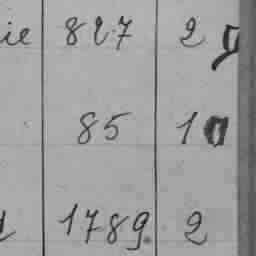 ie 827 2
85 10
1789. 2